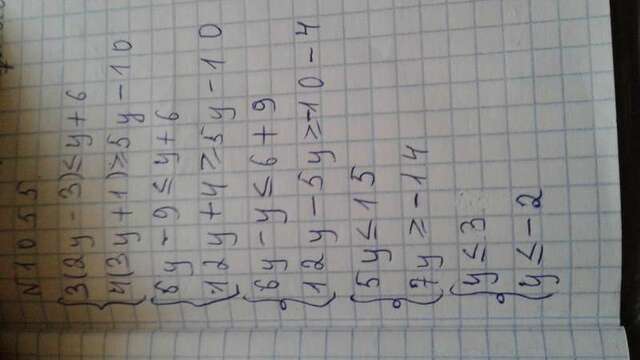 N1055
{3(2y-3)≤y+6
{4(3y+1)≥5y-10
{6y-9≤y+6
{12y+4≥5y-10
{6y-y≤6+9
{12y-5y≥-10-4
{5y≤15
{7y≥-14
{y≤3
{y≤-2